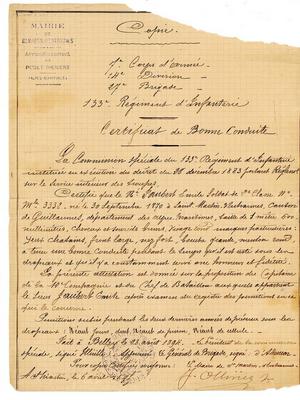 MAIRIE
DE
Arrondissement
DE
PUGET-THÉNIERS
(ALPES-MARITIMES)
Copie.
7e Corps d'Armée
14e Division
27e Brigade
133e Régiment d'Infanterie
Certificat de Bonne Conduite
La Commission spéciale du 133e Régiment d'Infanterie
instituée en exécution du décret du 28 décembre 1883 portant Règlement
sur le Service intérieur des Troupes
Certifie que le Sr Jaubert Emile Soldat de 2e Classe No
Mle 3338, né le 30 Septembre 1870 à Saint Martin, Canton
de Guillaumes, département des Alpes Maritimes, taille de 1 mètre
millimètres, cheveux et sourcils bruns, visage marques particulières
yeux chatains, front large, nez fort, bouche grande, menton rond
a tenu une bonne conduite pendant le temps qu'il est resté sous les
drapeaux et qu'il a constamment servi avec honneur et fidélité.
La présente attestation est donnée sur la proposition du Capitaine
de la Compagnie et du Chef de Bataillon auxquels appartient
le Sieur Jaubert Emile après examen du registre des punitions en ce
que le concerne.
Punitions subies pendant les deux dernières années de présence sous les
drapeaux : jours, dont jours de prison, jours de cellule.
Fait à Belley le 23 août 1894. Le Président de la commission
spéciale, signé Approuvé : le Général de Brigade, signé
Pour copie certifiée conforme Le Maire de St Martin
St Martin, le 6
J. Ollivier